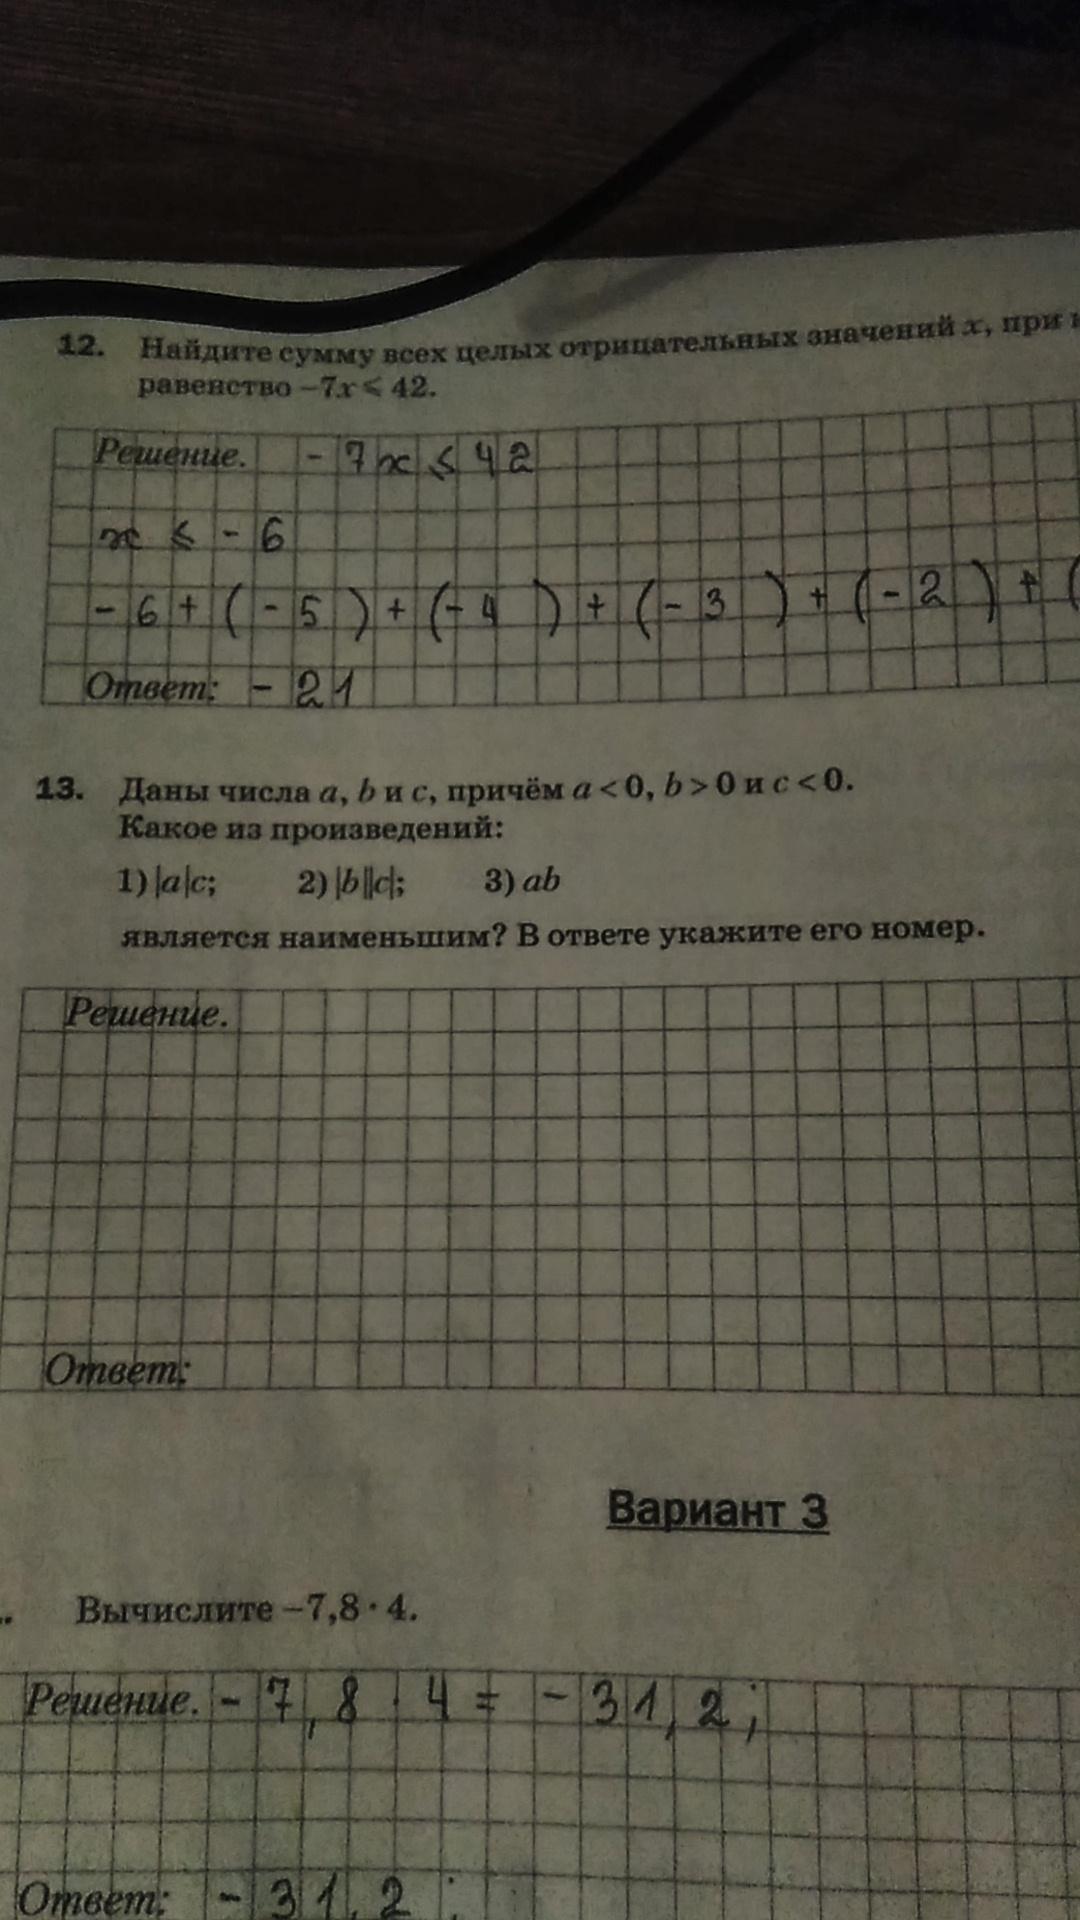 12. Найдите сумму всех целых отрицательных значений x, при
равенство −7x ⩽ 42.
Решение. - 7x ⩽ 42
x ⩽ - 6
- 6 + (- 5) + (- 4) + (- 3) + (- 2) + (
Ответ: - 21
13. Даны числа a, b и c, причём a < 0, b > 0 и c < 0.
Какое из произведений:
1) |a|c; 2) |b||c|; 3) ab
является наименьшим? В ответе укажите его номер.
Решение.
Ответ:
Вариант 3
Вычислите −7,8 · 4.
Решение. - 7,8 · 4 = - 31,2;
Ответ: - 31,2;